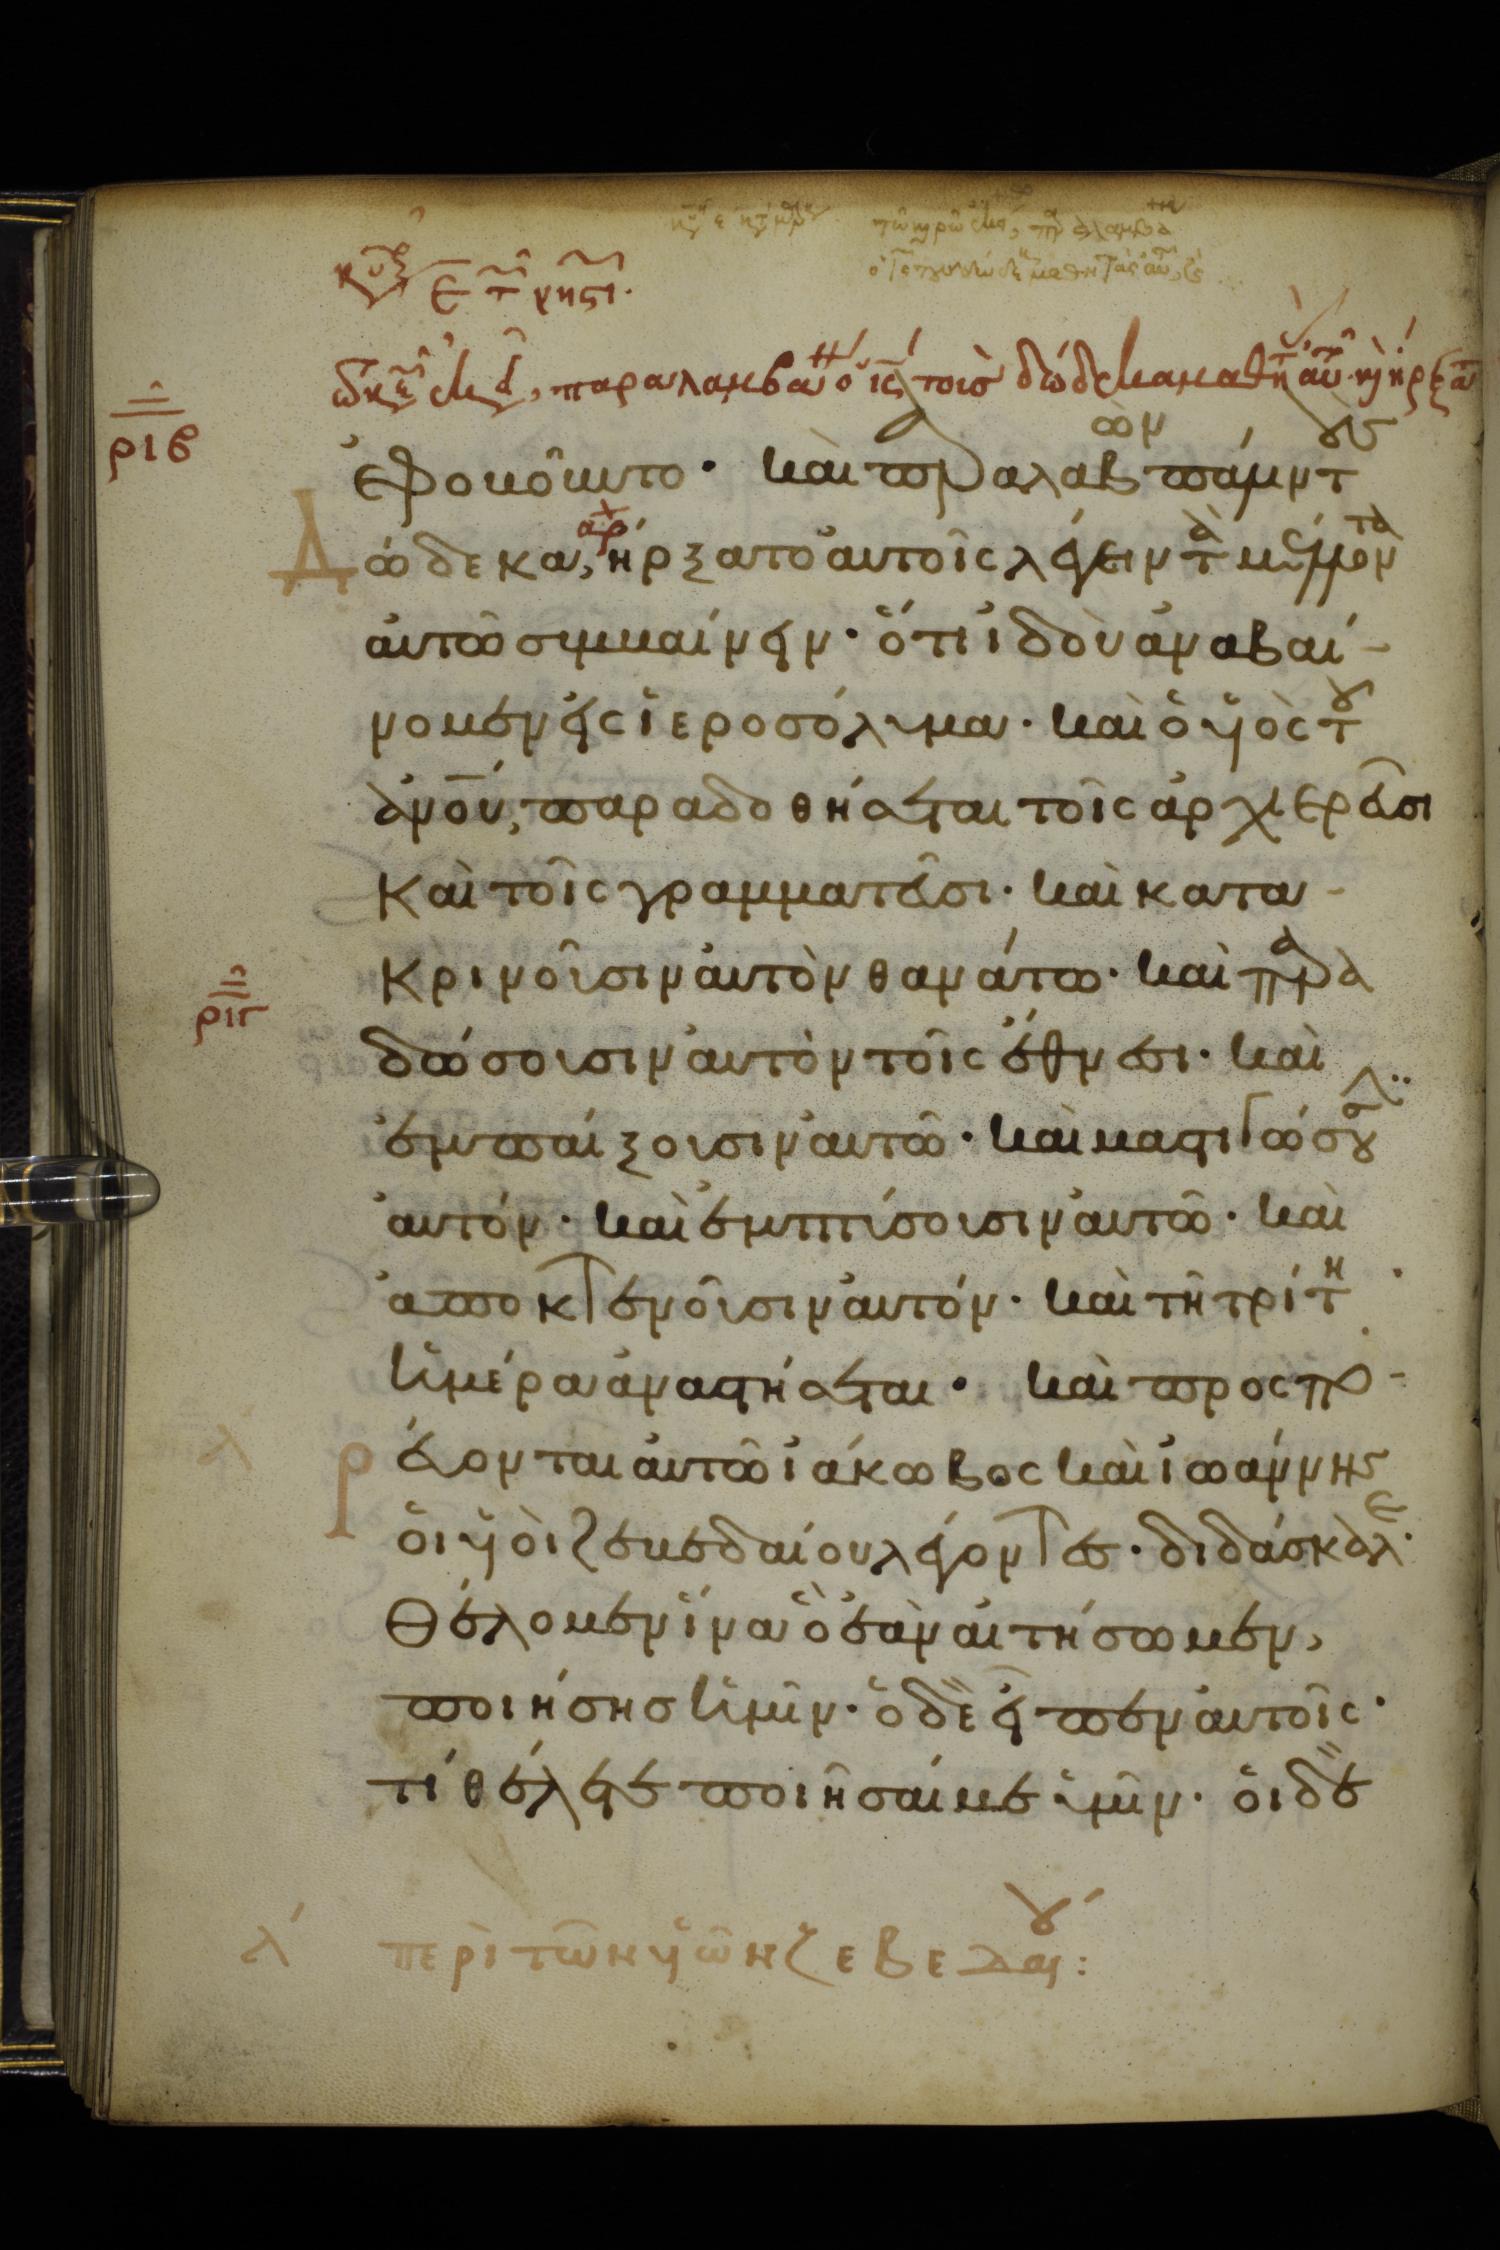 κυ ε τ νηστ.
τω κ ἐκ, παραλαμβαν ὁ ις τοὺς δώδεκα μαθητ αυτ. κ ἠρξατ
ριβ
ἐφοβοῦντο· καὶ παραλαβὼν πάλιν τοὺς
Δώδεκα, ἀρχ ἤρξατο αὐτοῖς λέγειν τὰ μέλλοντα
αὐτῶ συμβαίνειν· ὅτι ἰδοὺ ἀναβαί-
νομεν εἰς ἱεροσόλυμα· καὶ ὁ υἱὸς τοῦ
ἀνου, παραδοθήσεται τοῖς ἀρχιερεῦσι
καὶ τοῖς γραμματεῦσι· καὶ κατα-
κρινοῦσιν αὐτὸν θανάτω· καὶ παρα
ριγ
δώσουσιν αὐτὸν τοῖς ἔθνεσι· καὶ
ἐμπαίξουσιν αὐτῶ· καὶ μαστιγώσουσιν
αὐτόν· καὶ ἐμπτύσουσιν αὐτῶ· καὶ
ἀποκτενοῦσιν αὐτόν· καὶ τῆ τρίτη
ἡμέρα ἀναστήσεται· καὶ προσπο-
λ
ρεύονται αὐτῶ ἰάκωβος καὶ ἰωάννης
οἱ υἱοὶ ζεβεδαίου λέγοντες· διδάσκαλε·
θέλομεν ἵνα ὃ ἐὰν αἰτήσωμεν,
ποιήσης ἡμῖν· ὁ δὲ εἶπεν αὐτοῖς·
τί θέλετε ποιῆσαί με ὑμῖν· οἱ δὲ
λ περὶ τῶν υἱῶν ζεβεδαίου: